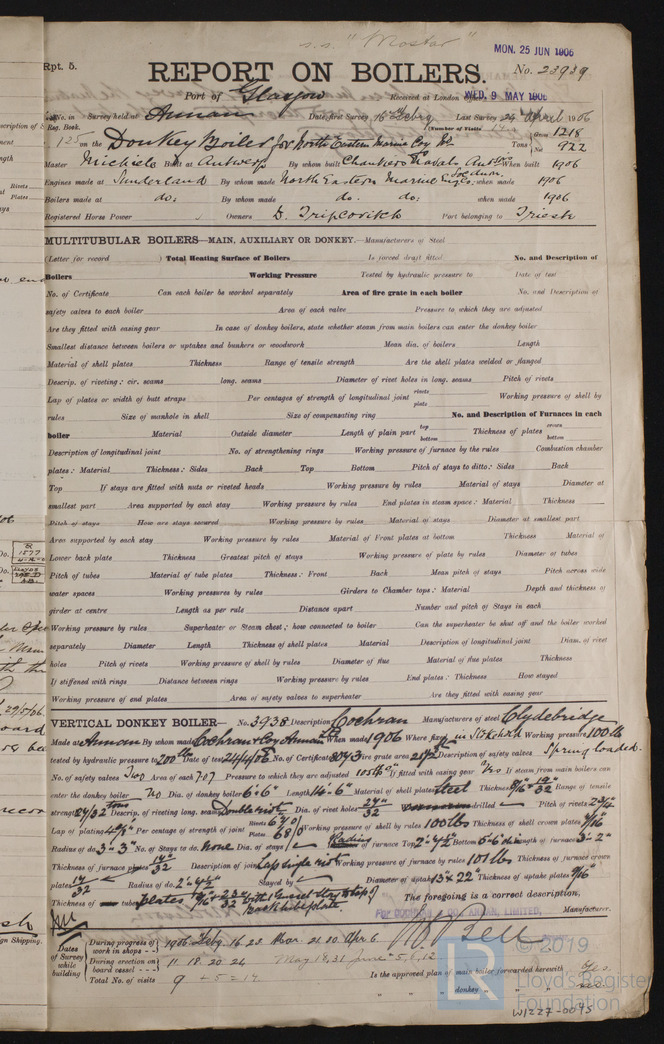 s.s. "Mostar"
MON. 25 JUN 1906
Rpt. 5.
No. 23939
REPORT ON BOILERS.
Port of Glasgow Received at London WED. 9 MAY 1906
No. in Survey held at Annan Date, first Survey 16 Febry Last Survey 24 April 1906
Reg. Book. (Number of Visits 14)
125 on the Donkey Boiler for North Eastern Marine Coy Ltd Tons Gross 1218 Net 922
Master Michieli Built at Antwerp By whom built Chantiers Navals Anversois When built 1906
Engines made at Sunderland By whom made North Eastern Marine Engrg Co when made 1906
Boilers made at do: By whom made do. do: when made 1906
Registered Horse Power Owners D. Tripcovich Port belonging to Trieste
MULTITUBULAR BOILERS—MAIN, AUXILIARY OR DONKEY.—Manufacturers of Steel
(Letter for record ) Total Heating Surface of Boilers Is forced draft fitted No. and Description of
Boilers Working Pressure Tested by hydraulic pressure to Date of test
No. of Certificate Can each boiler be worked separately Area of fire grate in each boiler No. and Description of
safety valves to each boiler Area of each valve Pressure to which they are adjusted
Are they fitted with easing gear In case of donkey boilers, state whether steam from main boilers can enter the donkey boiler
Smallest distance between boilers or uptakes and bunkers or woodwork Mean dia. of boilers Length
Material of shell plates Thickness Range of tensile strength Are the shell plates welded or flanged
Descrip. of riveting: cir. seams long. seams Diameter of rivet holes in long. seams Pitch of rivets
Lap of plates or width of butt straps Per centages of strength of longitudinal joint rivets plate Working pressure of shell by
rules Size of manhole in shell Size of compensating ring No. and Description of Furnaces in each
boiler Material Outside diameter Length of plain part top bottom Thickness of plates crown bottom
Description of longitudinal joint No. of strengthening rings Working pressure of furnace by the rules Combustion chamber
plates: Material Thickness: Sides Back Top Bottom Pitch of stays to ditto: Sides Back
Top If stays are fitted with nuts or riveted heads Working pressure by rules Material of stays Diameter at
smallest part Area supported by each stay Working pressure by rules End plates in steam space: Material Thickness
Pitch of stays How are stays secured Working pressure by rules Material of stays Diameter at smallest part
Area supported by each stay Working pressure by rules Material of Front plates at bottom Thickness Material of
Lower back plate Thickness Greatest pitch of stays Working pressure of plate by rules Diameter of tubes
Pitch of tubes Material of tube plates Thickness: Front Back Mean pitch of stays Pitch across wide
water spaces Working pressures by rules Girders to Chamber tops: Material Depth and thickness of
girder at centre Length as per rule Distance apart Number and pitch of Stays in each
Working pressure by rules Superheater or Steam chest; how connected to boiler Can the superheater be shut off and the boiler worked
separately Diameter Length Thickness of shell plates Material Description of longitudinal joint Diam. of rivet
holes Pitch of rivets Working pressure of shell by rules Diameter of flue Material of flue plates Thickness
If stiffened with rings Distance between rings Working pressure by rules End plates: Thickness How stayed
Working pressure of end plates Area of safety valves to superheater Are they fitted with easing gear
VERTICAL DONKEY BOILER— No. 3938 Description Cochran Manufacturers of steel Clydebridge
Made at Annan By whom made Cochran & Coy Annan Ld When made 1906 Where fixed in Stokehold Working pressure 100 lbs
tested by hydraulic pressure to 200 lbs Date of test 24/4/06 No. of Certificate 8073 Fire grate area 21½ Description of safety valves Spring loaded.
No. of safety valves Two Area of each 7.07 Pressure to which they are adjusted 105 lbs If fitted with easing gear Yes If steam from main boilers can
enter the donkey boiler No Dia. of donkey boiler 6'-6" Length 14'-6" Material of shell plates Steel Thickness Range of tensile
strength 27/32 tons Descrip. of riveting long. seams Double rivet Dia. of rivet holes 27/32 drilled Pitch of rivets 2 3/4
Lap of plating 4 1/8" Per centage of strength of joint Rivets 67.0 Plates 68.0 Working pressure of shell by rules 100 lbs Thickness of shell crown plates
Radius of do. 3'-3" No. of Stays to do. None Dia. of stays Radius of furnace Top 2'-4½" Bottom 5'-6" dia Length of furnace 3'-2"
Thickness of furnace plates Description of joint Lap single rivet Working pressure of furnace by rules 101 lbs Thickness of furnace crown
plates 17/32 Radius of do. 2'-4½" Stayed by Diameter of uptake 13 x 22 Thickness of uptake plates 9/16
Thickness of tube plates with Gusset Stay & strap of Back tube plate. The foregoing is a correct description,
FOR COCHRAN & CO., ANNAN, LIMITED, Manufacturer.
Dates of Survey while building
During progress of work in shops - - 1906 Feby. 16 23 Mar. 21 30 Apr 6
During erection on board vessel - - - 11 18 20 24 May 18, 31 June 5, 6, 12
Total No. of visits 9 + 5 = 14
Is the approved plan of main boiler forwarded herewith
" " " donkey " " " yes
© 2019
LR
Lloyd's Register
Foundation
W1227-0095